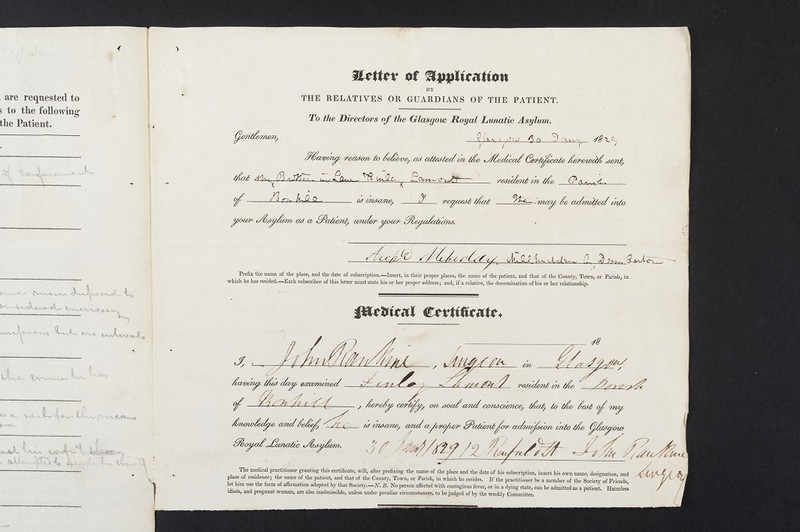 are requested to
s to the following
the Patient.
Letter of Application
BY
THE RELATIVES OR GUARDIANS OF THE PATIENT.
To the Directors of the Glasgow Royal Lunatic Asylum.
Gentlemen,
Glasgow 30 Jany 1829
Having reason to believe, as attested in the Medical Certificate herewith sent,
that my Brother in Law Finlay Lamont resident in the Parish
of Bonhill is insane, I request that He may be admitted into
your Asylum as a Patient, under your Regulations.
Dumbarton
Prefix the name of the place, and the date of subscription.—Insert, in their proper places, the name of the patient, and that of the County, Town, or Parish, in
which he has resided.—Each subscriber of this letter must state his or her proper address; and, if a relative, the denomination of his or her relationship.
Medical Certificate.
18
I, John Rankine, Surgeon in Glasgow,
having this day examined Finlay Lamont resident in the Parish
of Bonhill, hereby certify, on soul and conscience, that, to the best of my
knowledge and belief, he is insane, and a proper Patient for admission into the Glasgow
Royal Lunatic Asylum. 30 Jany 1829 12 Renfield St John Rankine
Surgeon
The medical practitioner granting this certificate, will, after prefixing the name of the place and the date of his subscription, insert his own name, designation, and
place of residence; the name of the patient, and that of the County, Town, or Parish, in which he resides. If the practitioner be a member of the Society of Friends,
let him use the form of affirmation adopted by that Society.—N. B. No person affected with contagious fever, or in a dying state, can be admitted as a patient. Harmless
idiots, and pregnant women, are also inadmissible, unless under peculiar circumstances, to be judged of by the weekly Committee.